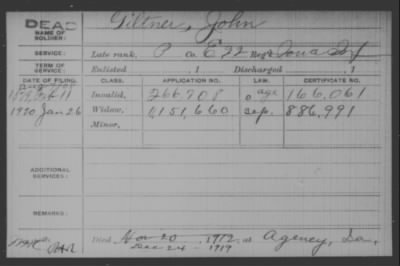 DEAD Tiltner, John
NAME OF
SOLDIER:
SERVICE: Late rank, P Co. E 22 Reg't Iowa Inf
TERM OF
SERVICE: Enlisted , 1 Discharged , 1
DATE OF FILING. CLASS. APPLICATION NO. LAW. CERTIFICATE NO.
1878 Feb 11 Invalid, 266,908 age 166,061
1920 Jan 26 Widow, 1151,660 Sep. 886,991
Minor,
ADDITIONAL
SERVICES:
REMARKS:
Died Nov 20, 1912, at Agency, Ia,
Dec 24 - 1919